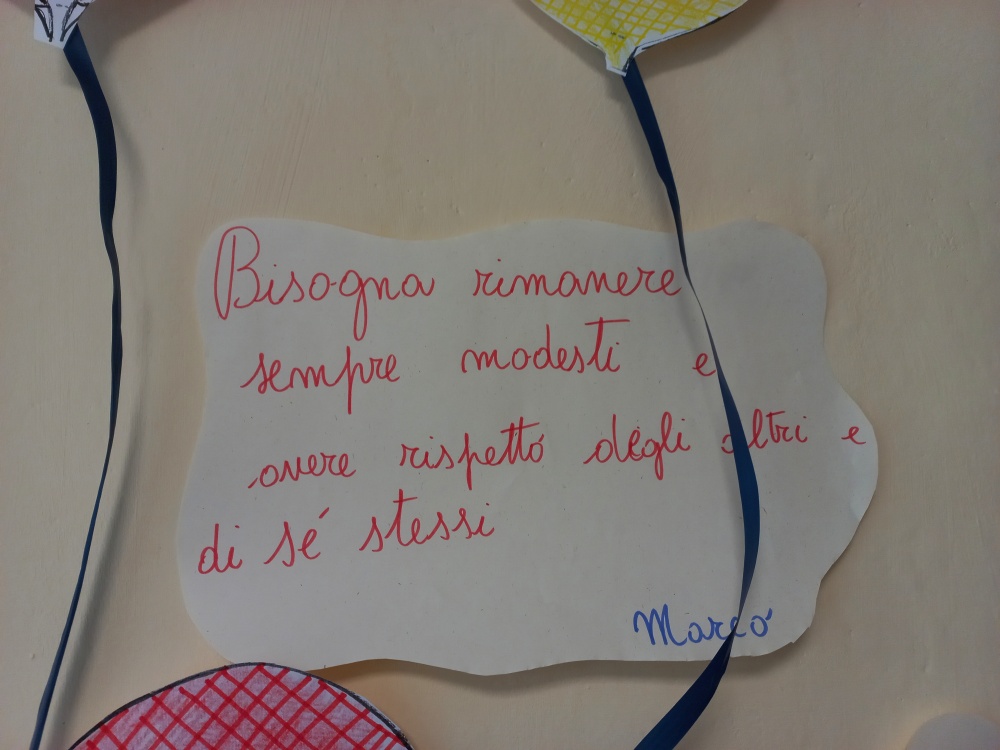 Bisogna rimanere
sempre modesti e
avere rispetto degli altri e
di sé stessi
Marco